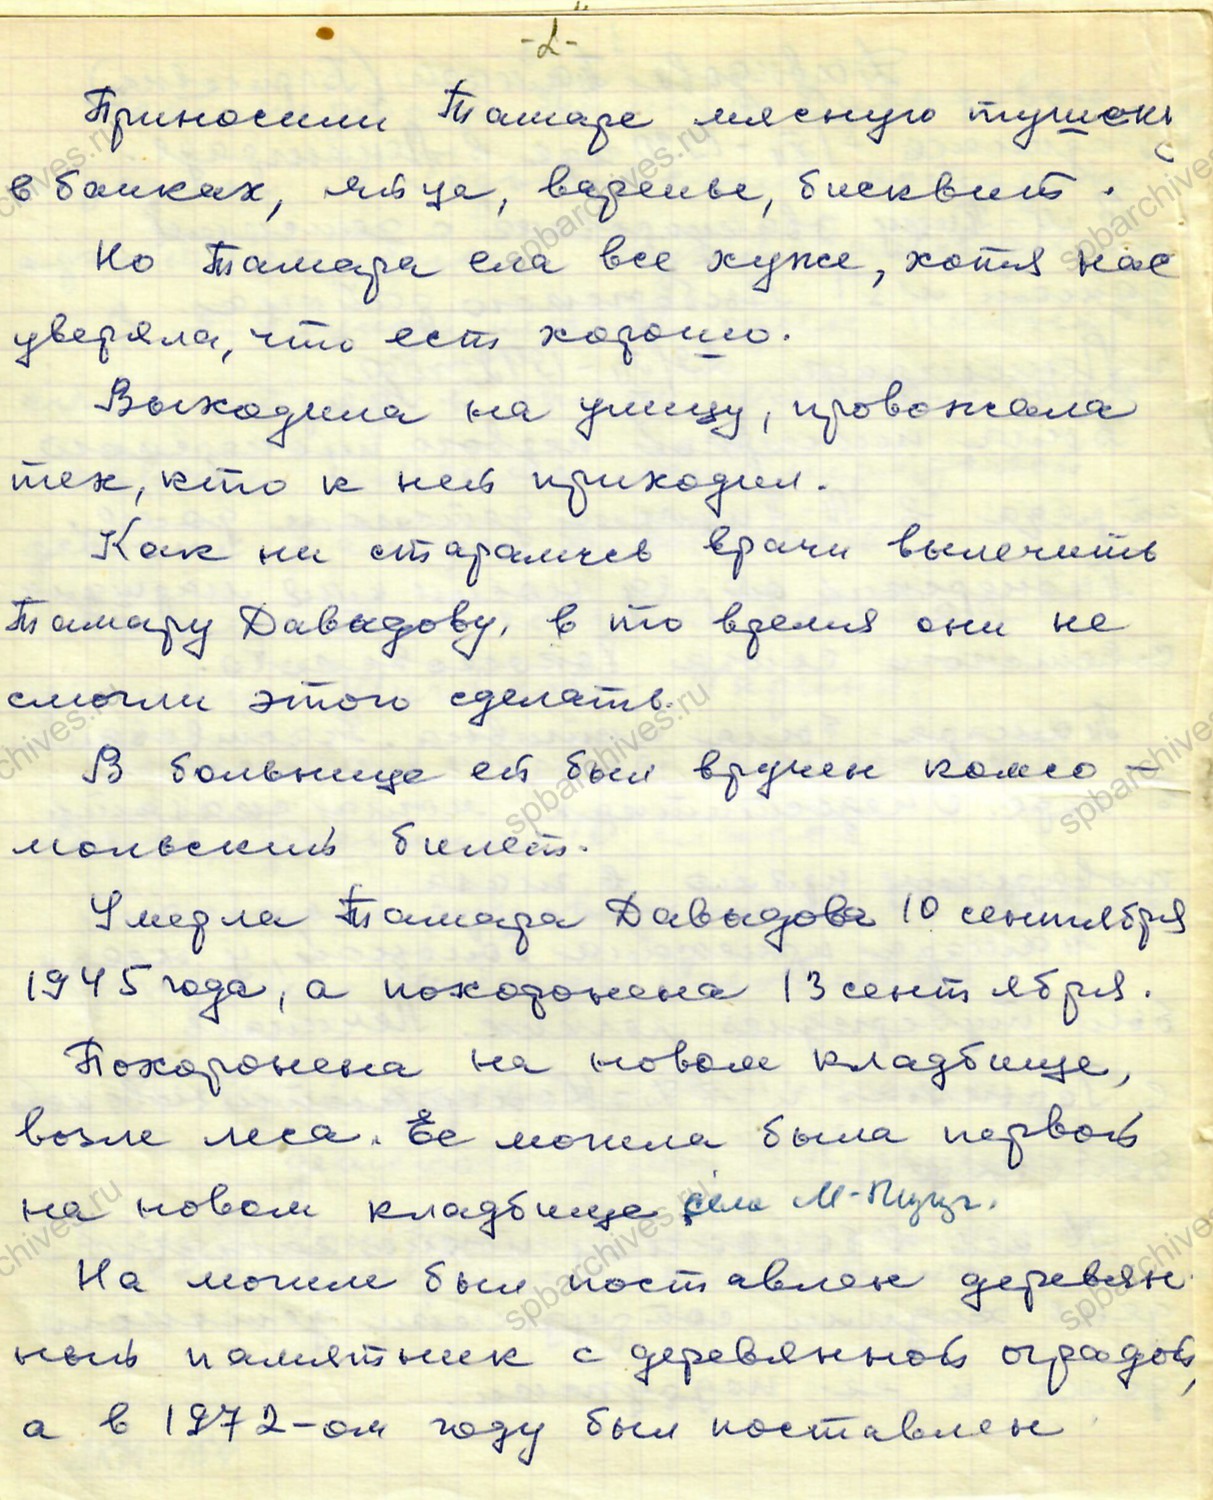 -2-
Приносили Тамаре мясную тушонку
в банках, яйца, варенье, бисквит.
Но Тамара ела все хуже, хотя нас
уверяла, что ест хорошо.
Выходила на улицу, провожала
тех, кто к ней приходил.
Как ни старались врачи вылечить
Тамару Давыдову, в то время они не
смогли этого сделать.
В больнице ей был вручен комсо-
мольский билет.
Умерла Тамара Давыдова 10 сентября
1945 года, а похоронена 13 сентября.
Похоронена на новом кладбище,
возле леса. Ее могила была первой
на новом кладбище села М-
На могиле был поставлен деревян-
ный памятник с деревянной оградой,
а в 1972-ом году был поставлен
spbarchives.ru